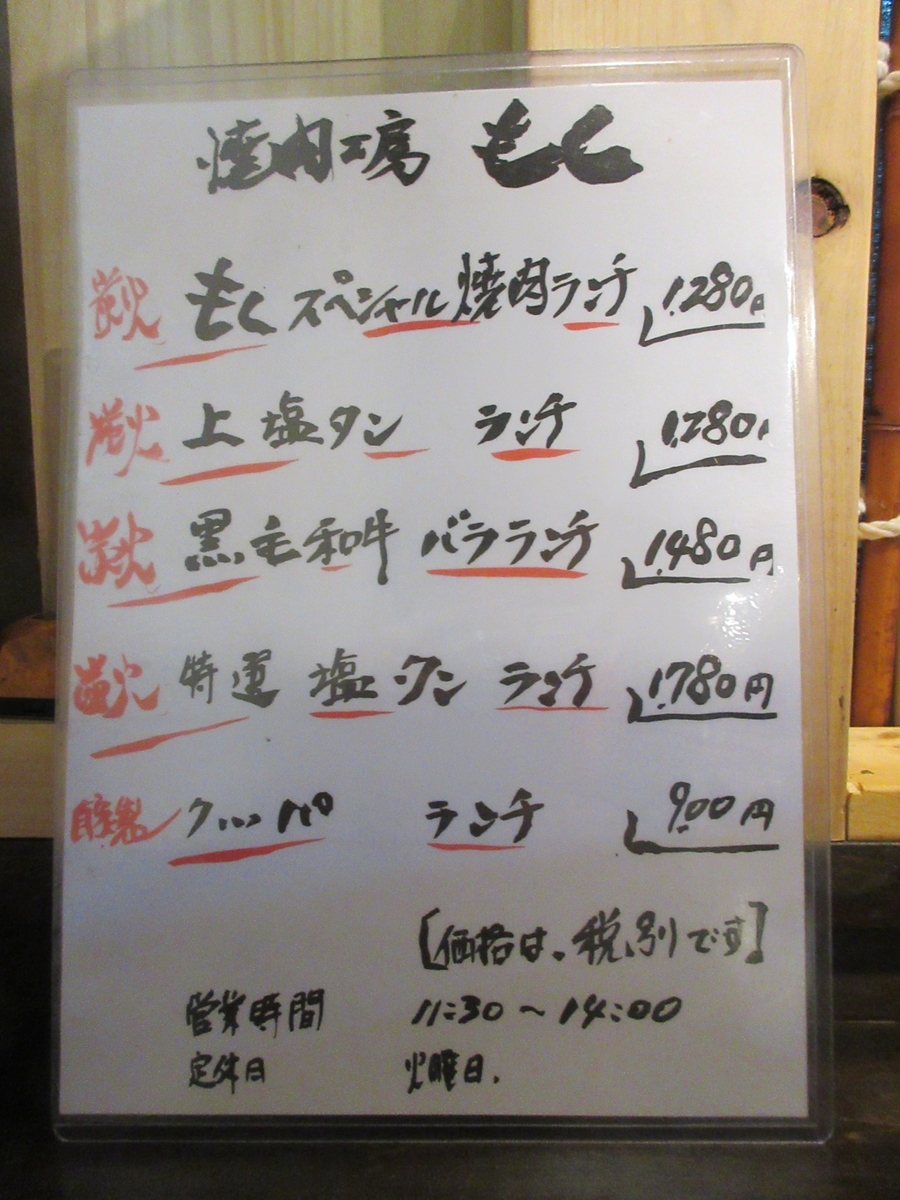 焼肉工房 もく
炭火 もくスペシャル焼肉ランチ 1.280円
炭火 上塩タン ランチ 1.280円
炭火 黒毛和牛 バラランチ 1.480円
炭火 特選 塩タン ランチ 1.780円
自家製 クッパ ランチ 900円
[価格は、税別です]
営業時間 11:30～14:00
定休日 火曜日.